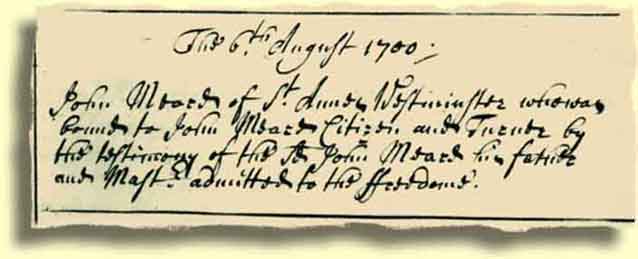 The 6th. August 1700:
John Meard of St. Annes Westminster who was
bound to John Meard Citizen and Turner by
the testimony of the sd. John Meard his father
and Mastr. admitted to the ffreedome.